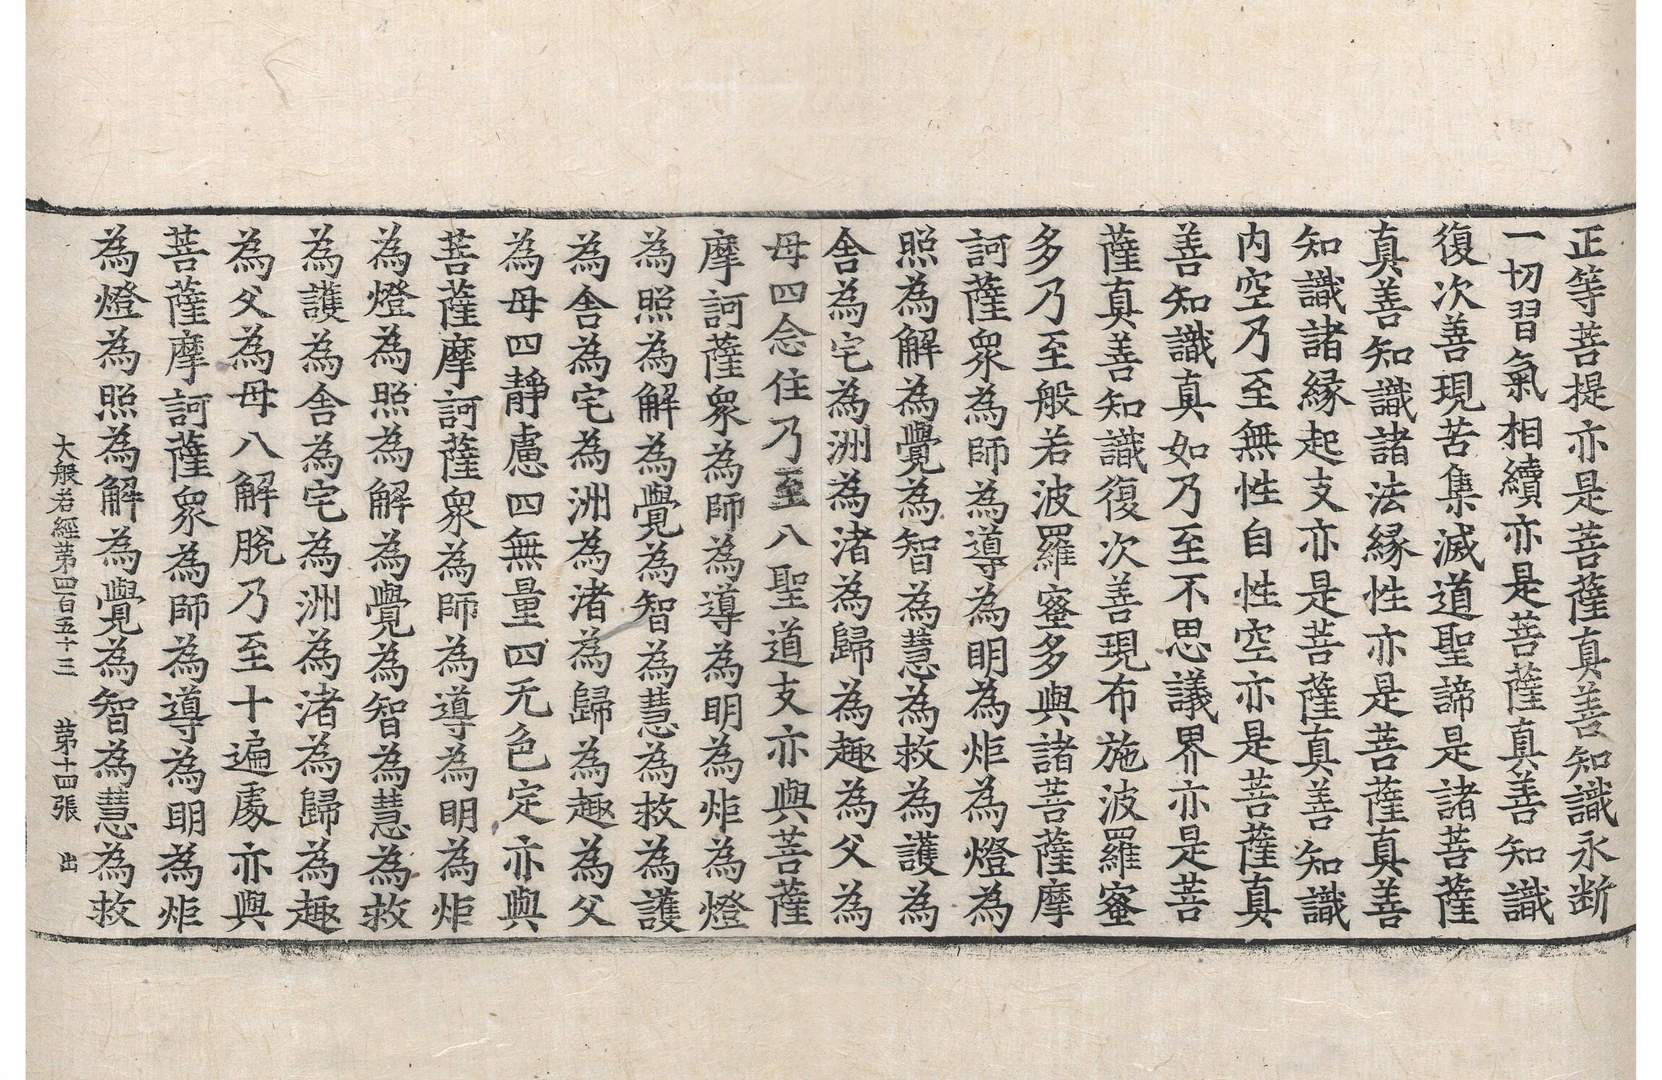 正等菩提亦是菩薩真善知識永断
一切習氣相續亦是菩薩真善知識
復次善現苦集滅道聖諦是諸菩薩
真善知識諸法緣性亦是菩薩真善
知識諸緣起支亦是菩薩真善知識
内空乃至無性自性空亦是菩薩真
善知識真如乃至不思議界亦是菩
薩真善知識復次善現布施波羅蜜
多乃至般若波羅蜜多與諸菩薩摩
訶薩衆為師為導為明為炬為燈為
照為解為覺為智為慧為救為護為
舍為宅為洲為渚為歸為趣為父為
母四念住乃至八聖道支亦與菩薩
摩訶薩衆為師為導為明為炬為燈
為照為解為覺為智為慧為救為護
為舍為宅為洲為渚為歸為趣為父
為母四靜慮四無量四无色定亦與
菩薩摩訶薩衆為師為導為明為炬
為燈為照為解為覺為智為慧為救
為護為舍為宅為洲為渚為歸為趣
為父為母八解脫乃至十遍處亦與
菩薩摩訶薩衆為師為導為明為炬
為燈為照為解為覺為智為慧為救
大般若經苐四百五十三 苐十四張 出